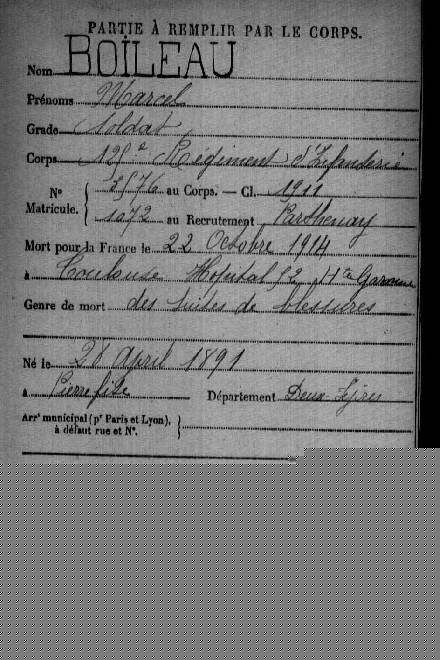 PARTIE À REMPLIR PAR LE CORPS.
Nom BOILEAU
Prénoms Marcel
Grade Soldat
Corps 125e Régiment d'Infanterie
No Matricule. { au Corps. — Cl. 1911
1072 au Recrutement Parthenay
Mort pour la France le 22 Octobre 1914
à Toulouse Hopital 52 Hte Garonne
Genre de mort des suites de blessures
Né le 28 April 1891
à Pierrefite Département Deux-Sèvres
Arrt municipal (pr Paris et Lyon), à défaut rue et No. }